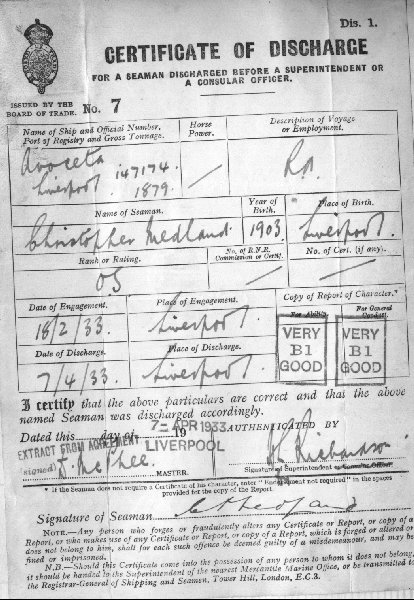 Dis. 1.
CERTIFICATE OF DISCHARGE
FOR A SEAMAN DISCHARGED BEFORE A SUPERINTENDENT OR
A CONSULAR OFFICER.
ISSUED BY THE
BOARD OF TRADE.
No. 7
Name of Ship and Official Number,
Port of Registry and Gross Tonnage.
Horse
Power.
Description of Voyage
or Employment.
Avoceta 147174.
Liverpool 1879.
Name of Seaman.
Year of
Birth.
Place of Birth.
Christopher Medland 1903 Liverpool.
Rank or Rating.
No. of R.N.R.
Commission or Certif.
No. of Cert. (if any).
OS
Date of Engagement.
Place of Engagement.
Copy of Report of Character.*
For Ability.
For General
Conduct.
18/2/33.
Liverpool
VERY
B1
GOOD
VERY
B1
GOOD
Date of Discharge.
Place of Discharge.
7/4/33.
Liverpool
I certify that the above particulars are correct and that the above
named Seaman was discharged accordingly.
Dated this day of 19
7 - APR 1933
LIVERPOOL
AUTHENTICATED BY
EXTRACT FROM AGREEMENT
(signed) J. McPhee
MASTER.
Richardson
Signature of Superintendent or Consular Officer.
* If the Seaman does not require a Certificate of his character, enter "Endorsement not required" in the spaces
provided for the copy of the Report.
Signature of Seaman
NOTE.—Any person who forges or fraudulently alters any Certificate or Report, or copy of a
Report, or who makes use of any Certificate or Report, or copy of a Report, which is forged or altered or
does not belong to him, shall for each such offence be deemed guilty of a misdemeanour, and may be
fined or imprisoned.
N.B.—Should this Certificate come into the possession of any person to whom it does not belong,
it should be handed to the Superintendent of the nearest Mercantile Marine Office, or be transmitted to
the Registrar-General of Shipping and Seamen, Tower Hill, London, E.C.3.